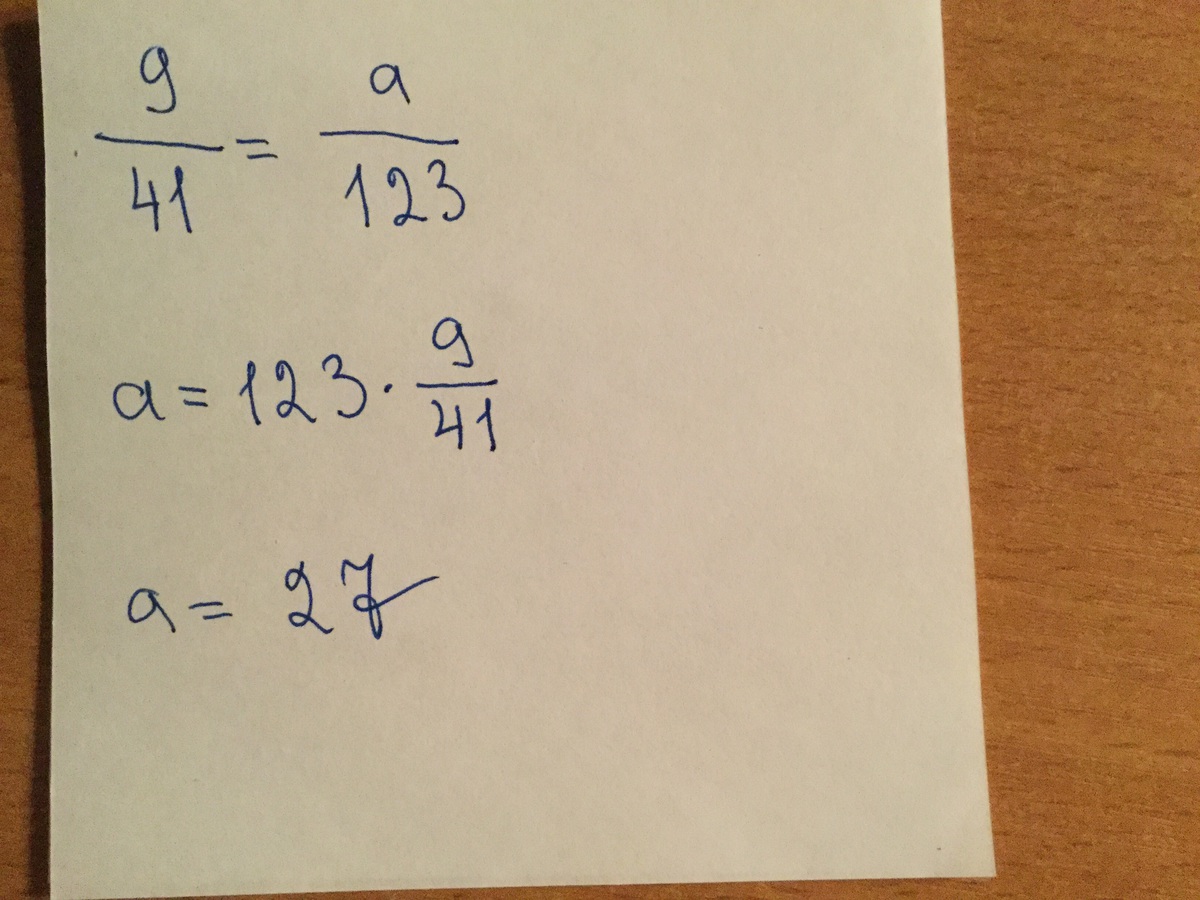 9/41 = a/123
a = 123 · 9/41
a = 27